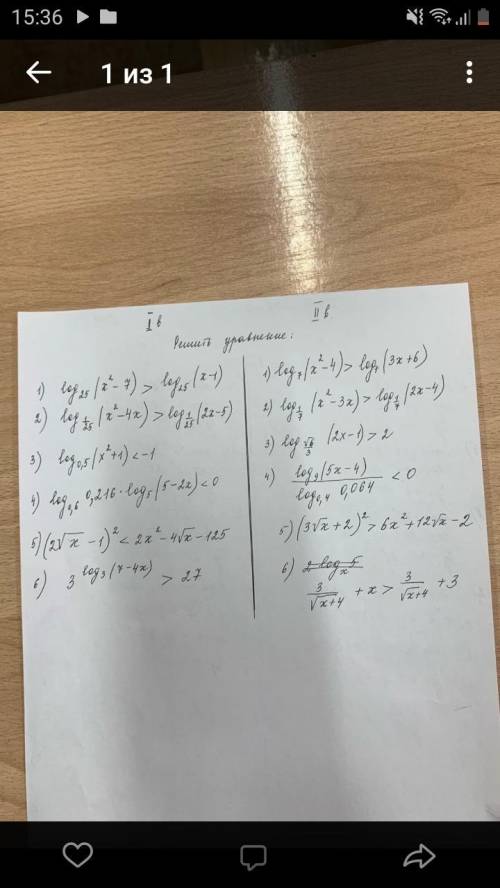 15:36
1 из 1
I в
II в
Решить уравнение:
1) log₂₅(x²-7) > log₂₅(x-1)
2) log_{1/25}(x²-4x) > log_{1/25}(2x-5)
3) log_{0,5}(x²+1) < -1
4) log_{0,6} 0,216 · log₅(5-2x) < 0
5) (2√x - 1)² < 2x² - 4√x - 125
6) 3^{log₃(7-4x)} > 27
1) log₇(x²-4) > log₇(3x+6)
2) log_{1/7}(x²-3x) > log_{1/7}(2x-4)
3) log_{√6/3}(2x-1) > 2
4) log₉(5x-4) / log_{0,4} 0,064 < 0
5) (3√x + 2)² > 6x² + 12√x - 2
6) 2 log_x 5
3/√(x+4) + x > 3/√(x+4) + 3